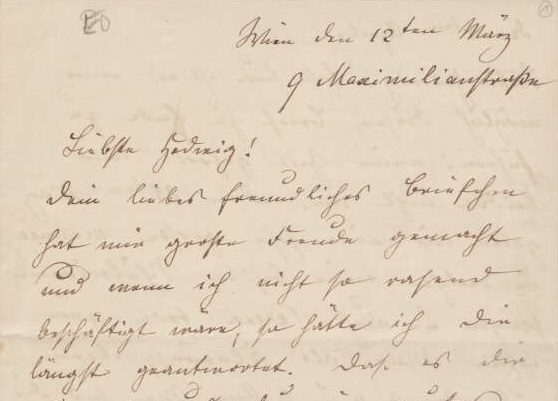 Wien den 12ten März
9 Maximilianstraße
Liebste Hedwig!
Dein liebes freundliches Briefchen
hat mir große Freude gemacht
und wenn ich nicht so rasend
beschäftigt wäre, so hätte ich Dir
längst geantwortet. Daß es dir